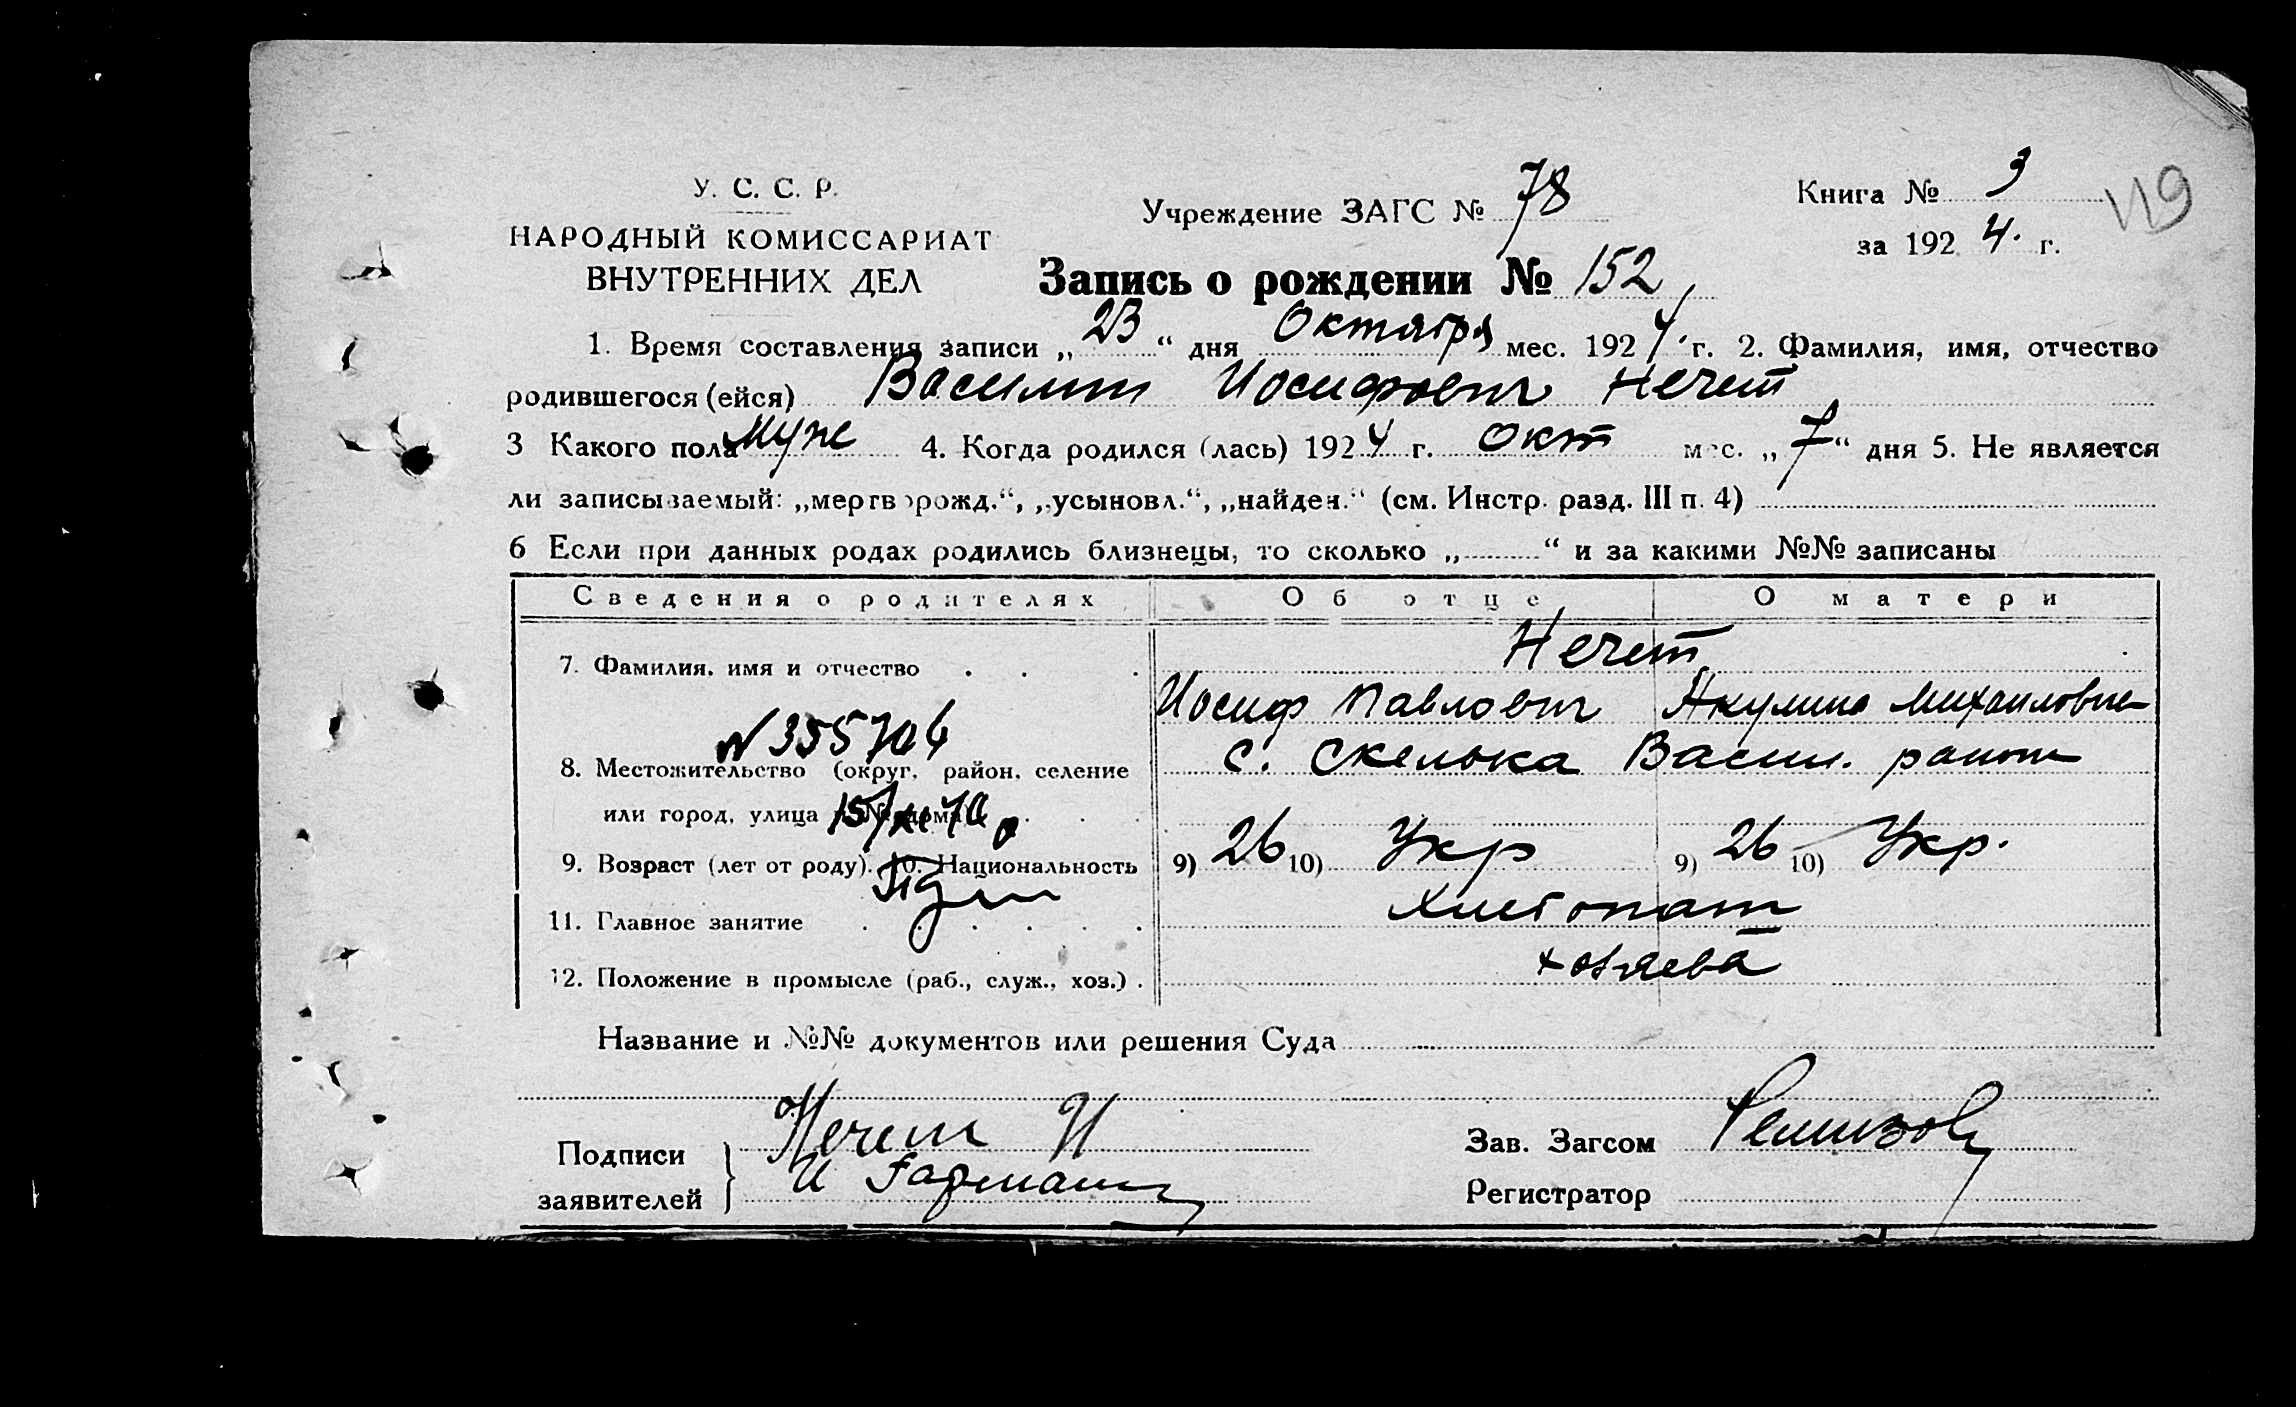 У. С. С. Р.
НАРОДНЫЙ КОМИССАРИАТ
ВНУТРЕННИХ ДЕЛ
Учреждение ЗАГС № 78
Книга № 3
119
за 1924. г.
Запись о рождении № 152
1. Время составления записи „23“ дня Октября мес. 1924 г. 2. Фамилия, имя, отчество
родившегося (ейся) Василий Иосифович Нечет
3 Какого пола муж 4. Когда родился (лась) 1924 г. окт мес. „7“ дня 5. Не является
ли записываемый: „мертворожд.“, „усыновл.“, „найден.“ (см. Инстр. разд. III п. 4)
6 Если при данных родах родились близнецы, то сколько „ “ и за какими №№ записаны
Сведения о родителях Об отце О матери
7. Фамилия, имя и отчество Нечет
Иосиф Павлович Акулина Михайловна
N 355704
8. Местожительство (округ, район, селение с. Скелька Васил. район
или город, улица № дома)
9. Возраст (лет от роду). 10. Национальность 9) 26 10) Укр 9) 26 10) Укр.
11. Главное занятие Хлебопаш
12. Положение в промысле (раб., служ., хоз.) хозяева
Название и №№ документов или решения Суда
Подписи заявителей Нечет И
Зав. Загсом Ремизов
Регистратор